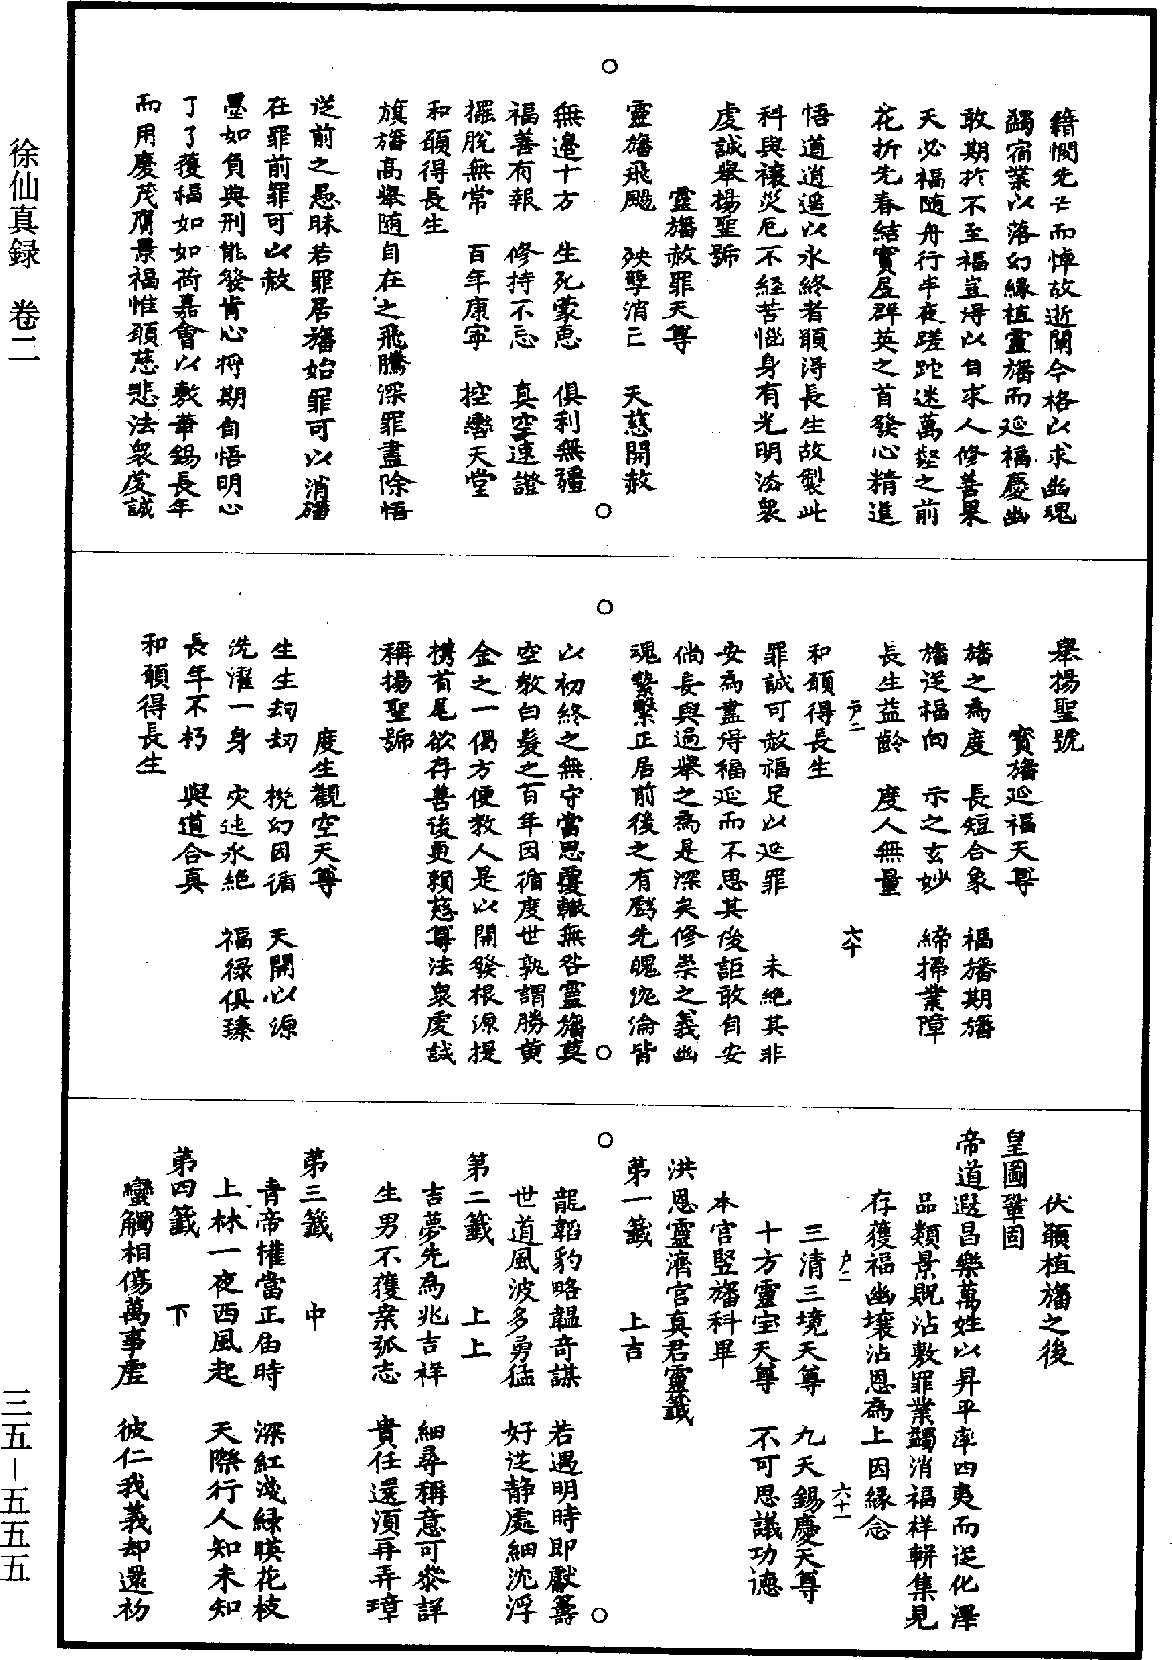 籍憫先亡而悼故逝闡今格以求幽魂
蠲宿業以落幻緣植靈旛而延福慶幽
敢期於不至福豈得以自求人修善果
天必福隨舟行半夜蹉跎迷萬壑之前
花折先春結實居群英之首發心精進
悟道逍遥以永終者願得長生故製此
科與禳災厄不經苦惱身有光明法衆
虔誠舉揚聖號
靈旛赦罪天尊
靈旛飛颺 殃孽消亡 天慈開赦
無邊十方 生死蒙恩 俱利無疆
福善有報 修持不忘 真空速證
擺脫無常 百年康寧 控鸞天堂
和願得長生
旗旛高舉随自在之飛騰深罪盡除悟
從前之愚昧若罪居旛始罪可以消旛
在罪前罪可以赦
墨如負與刑能發肯心將期自悟明心
了了獲福如如荷嘉會以敷華錫長年
而用慶茂膺景福惟願慈悲法衆虔誠
舉揚聖號
寳旛延福天尊
旛之為度 長短合象 福旛期旛
旛逆福向 示之玄妙 締掃業障
長生益齡 度人無量
戶二 六十
和願得長生
罪誠可赦福足以延罪 未絶其非
安為盡得福延而不思其後詎敢自安
倘妄與過舉之為是深矣修崇之義幽
魂縶繫正居前後之有愆先魄沈淪皆
以初終之無守當思覆轍無咎靈旛莫
空教白髮之百年因循度世孰謂勝黄
金之一偈方便教人是以開發根源提
携首尾欲存善後更頼慈尊法衆虔誠
稱揚聖號
度生觀空天尊
生生刼刼 梲幻因循 天開心源
洗濯一身 灾迍永絶 福祿俱臻
長年不朽 與道合真
和願得長生
伏願植旛之後
皇圖鞏固
帝道遐昌樂萬姓以昇平率四夷而從化澤
品類景貺沾敷罪業蠲消福祥輧集見
存獲福幽壤沾恩為上因緣念
三清三境天尊 九天錫慶天尊
戶二 六十一
十方靈宝天尊 不可思議功德
本官竪旛科畢
洪恩靈濟宫真君靈籤
第一籤 上吉
龍韜豹略韞奇謀 若遇明時即獻籌
世道風波多勇猛 好從静處細沈浮
第二籤 上上
吉夢先為兆吉祥 細尋稱意可叅詳
生男不獲亲弧志 貴任還須再弄璋
第三籤 中
青帝權當正届時 深紅淺緑暎花枝
上林一夜西風起 天際行人知未知
第四籤 下
蠻觸相傷萬事虛 彼仁我義却還初
徐仙真録 卷二
三五－五五五